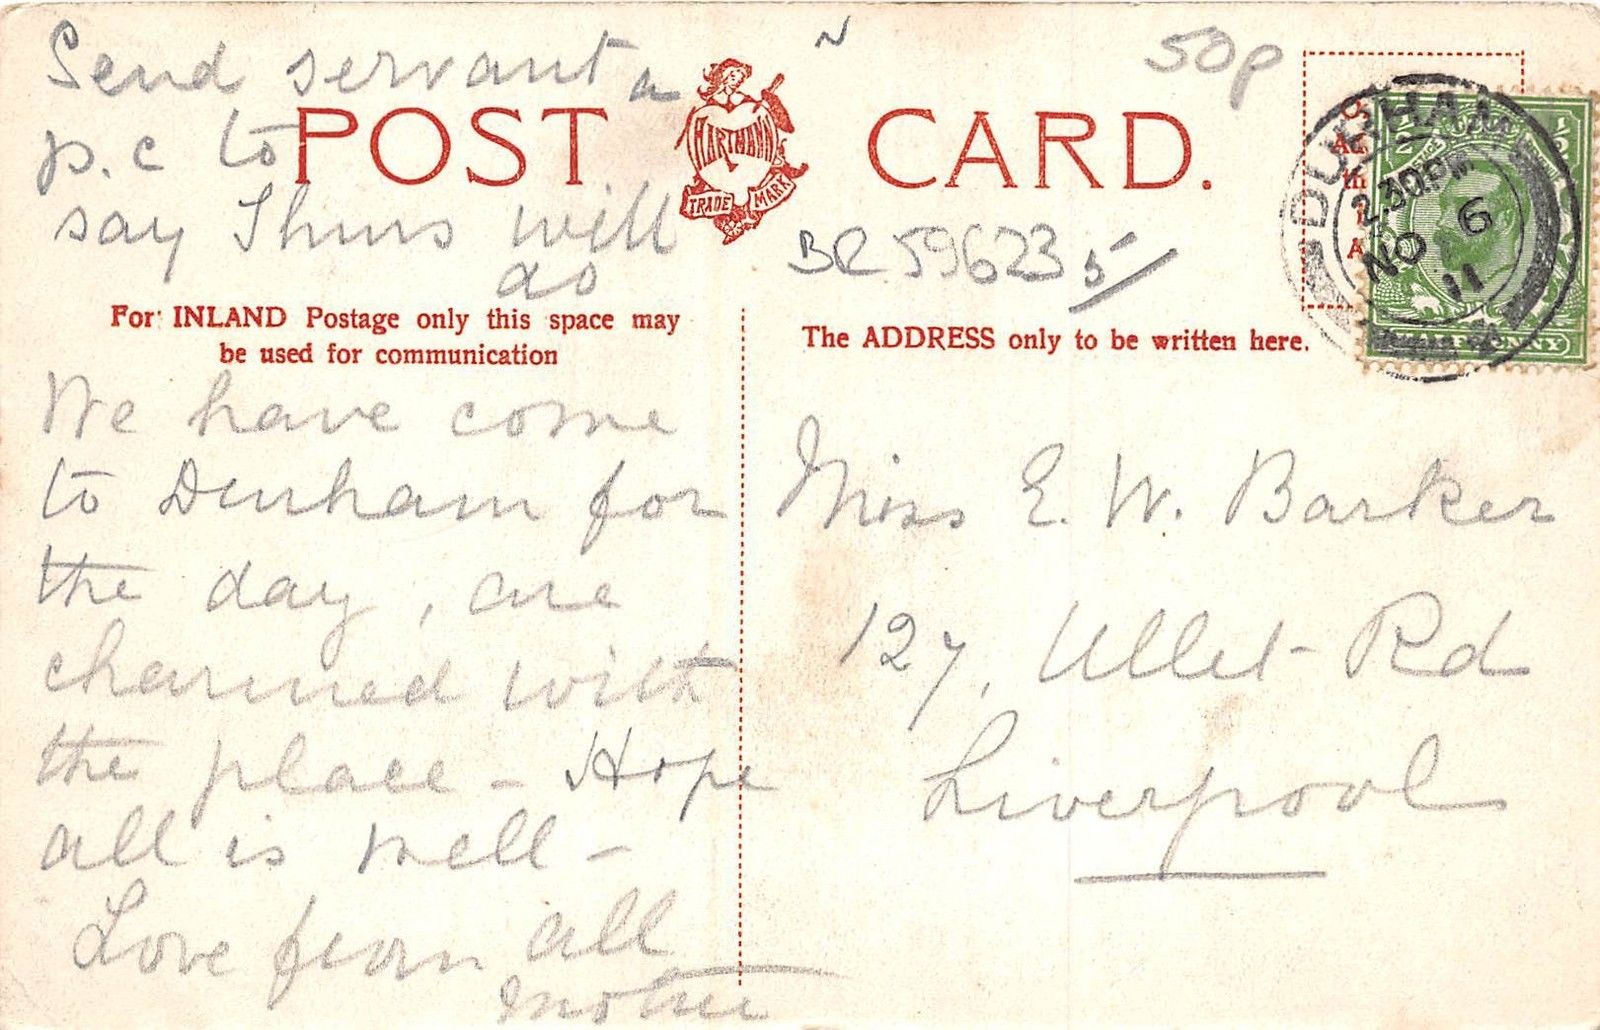 Send servant a
p.c to
say Thurs will
do
POST CARD.
HARTMANN
TRADE MARK
50p
BR 59623 5/
For INLAND Postage only this space may
be used for communication
The ADDRESS only to be written here.
DURHAM
2.30PM
NO 6
11
We have come
to Durham for
the day, are
charmed with
the place - Hope
all is well -
Love from all
Mother
Miss E. W. Barker
127, Ullet Rd
Liverpool